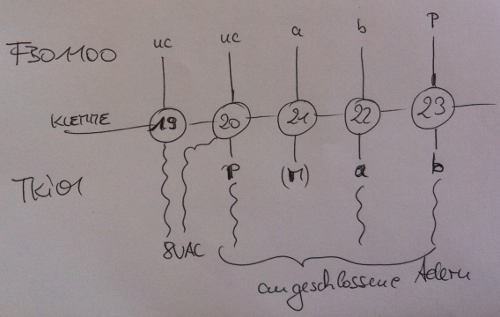 uc uc a b P
F301100
KLEMME 19 20 21 22 23
TKi01
P (M) a b
8VAC
angeschlossene Adern